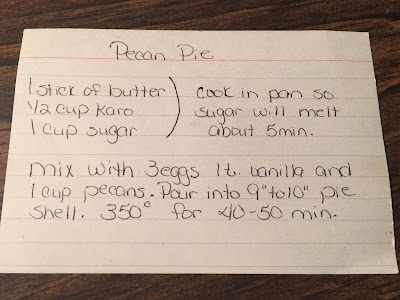 Pecan Pie
1 stick of butter ) cook in pan so
1/2 cup Karo sugar will melt
1 cup sugar about 5min.
mix with 3eggs 1t. vanilla and
1 cup pecans. Pour into 9" to 10" pie
shell. 350° for 40-50 min.